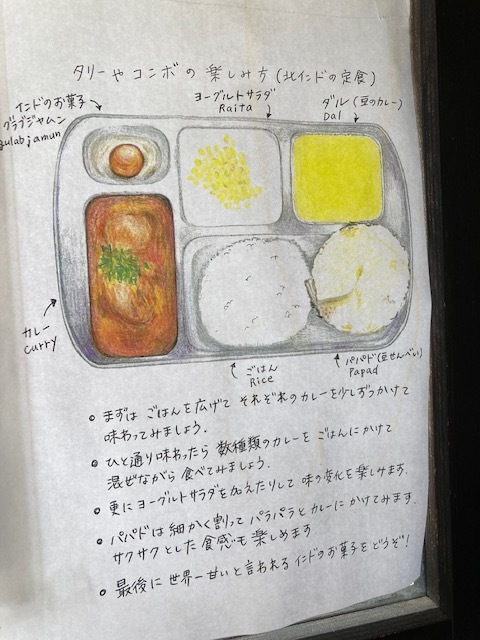 タリーやコンボの楽しみ方(北インドの定食)
インドのお菓子
グラブジャムン
gulabjamun
ヨーグルトサラダ
Raita
ダル(豆のカレー)
Dal
カレー
curry
ごはん
Rice
パパド(豆せんべい)
Papad
まずは ごはんを広げて それぞれのカレーを少しずつかけて
味わってみましょう.
ひと通り味わったら 数種類のカレーを ごはんにかけて
混ぜながら 食べてみましょう.
更にヨーグルトサラダを加えたりして 味の変化を楽しみます.
パパドは細かく割って パラパラとカレーにかけてみます.
サクサクとした食感も楽しめます
最後に世界一甘いと言われる インドのお菓子をどうぞ!